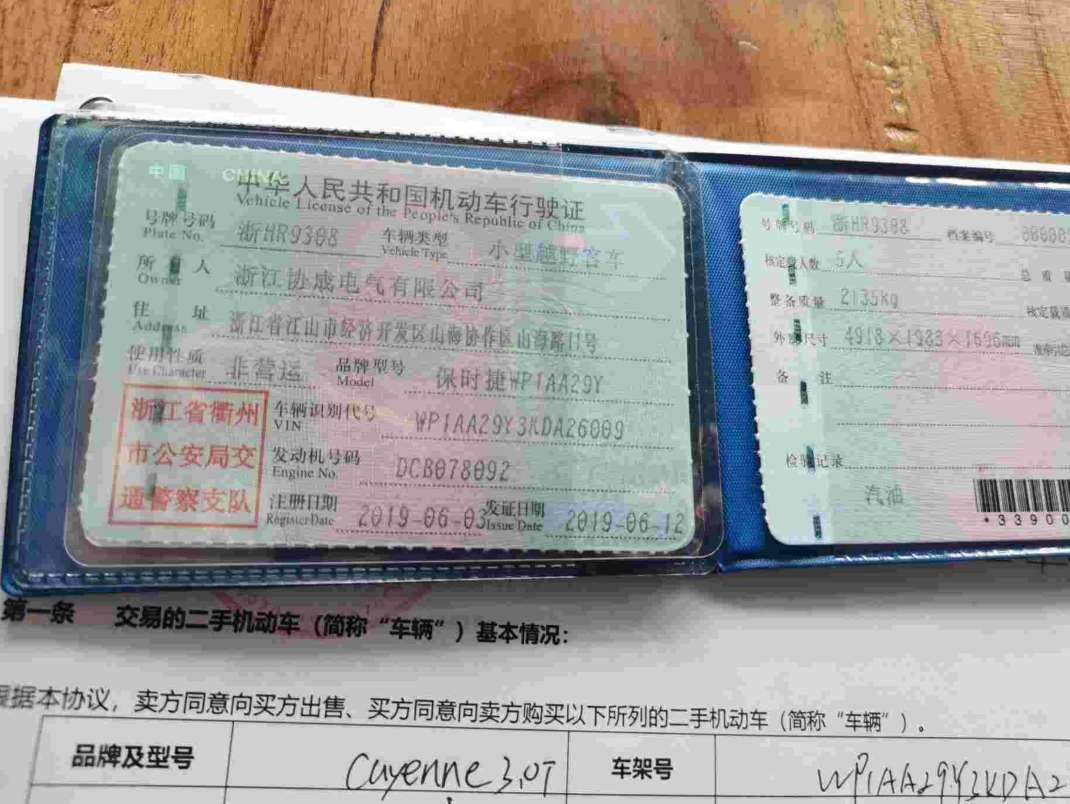 中国 CHINA
中华人民共和国机动车行驶证
Vehicle License of the People's Republic of China
号牌号码 浙HR9308 车辆类型 小型越野客车
Plate No. Vehicle Type
所有人 浙江协成电气有限公司
Owner
住址 浙江省江山市经济开发区山海协作区山海路11号
Address
使用性质 非营运 品牌型号 保时捷WP1AA29Y
Use Character Model
浙江省衢州
市公安局交
通警察支队
车辆识别代号 WP1AA29Y3KDA26009
VIN
发动机号码 DCB078092
Engine No.
注册日期 2019-06-03 发证日期 2019-06-12
Register Date Issue Date
号牌号码 浙HR9308 档案编号
核定载人数 5人 总质量
整备质量 2135kg
外廓尺寸 4918×1983×1696mm
备注
检验记录
汽油
*33900
第一条 交易的二手机动车（简称“车辆”）基本情况：
根据本协议，卖方同意向买方出售、买方同意向卖方购买以下所列的二手机动车（简称“车辆”）。
品牌及型号 Cayenne 3.0T 车架号 WP1AA29Y3KDA2